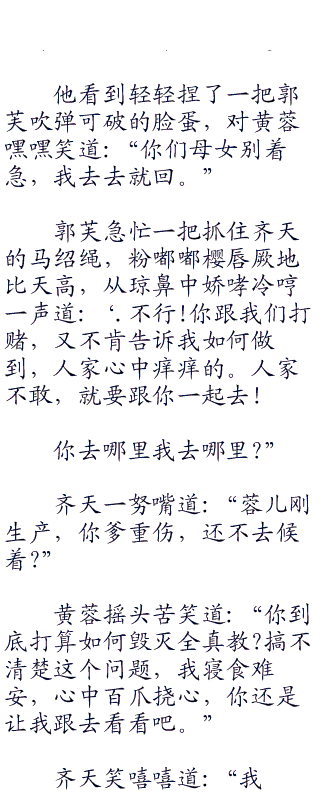 他看到轻轻捏了一把郭
芙吹弹可破的脸蛋，对黄蓉
嘿嘿笑道：“你们母女别着
急，我去去就回。”
郭芙急忙一把抓住齐天
的马绍绳，粉嘟嘟樱唇厥地
比天高，从琼鼻中娇哮冷哼
一声道：‘．不行！你跟我们打
赌，又不肯告诉我如何做
到，人家心中痒痒的。人家
不敢，就要跟你一起去！
你去哪里我去哪里？”
齐天一努嘴道：“蓉儿刚
生产，你爹重伤，还不去候
着？”
黄蓉摇头苦笑道：“你到
底打算如何毁灭全真教？搞不
清楚这个问题，我寝食难
安，心中百爪挠心，你还是
让我跟去看看吧。”
齐天笑嘻嘻道：“我